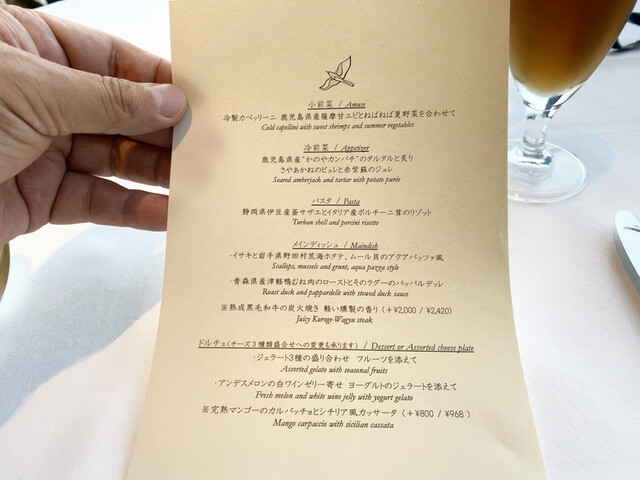 小前菜 / Amuse
冷製カペッリーニ 鹿児島県産薩摩甘エビとねばねば夏野菜を合わせて
Cold capellini with sweet shrimps and summer vegetables
冷前菜 / Appetizer
鹿児島県産"かのやカンパチ"のタルタルと炙り
さやあかねのピュレと赤紫蘇のジュレ
Seared amberjack and tartar with potato purée
パスタ / Pasta
静岡県伊豆産釜サザエとイタリア産ポルチーニ茸のリゾット
Turban shell and porcini risotto
メインディッシュ / Maindish
・イサキと岩手県野田村荒海ホタテ、ムール貝のアクアパッツァ風
Scallops, mussels and grunt, aqua pazza style
・青森県産津軽鴨むね肉のローストとそのラグーのパッパルデッレ
Roast duck and pappardelle with stewed duck sauce
※熟成黒毛和牛の炭火焼き 軽い燻製の香り (+¥2,000 / ¥2,420)
Juicy Kuroge-Wagyu steak
ドルチェ(チーズ3種類盛合せへの変更も承ります) / Dessert or Assorted cheese plate
・ジェラート3種の盛り合わせ フルーツを添えて
Assorted gelato with seasonal fruits
・アンデスメロンの白ワインゼリー寄せ ヨーグルトのジェラートを添えて
Fresh melon and white wine jelly with yogurt gelato
※完熟マンゴーのカルパッチョとシチリア風カッサータ (+¥800 / ¥968)
Mango carpaccio with sicilian cassata